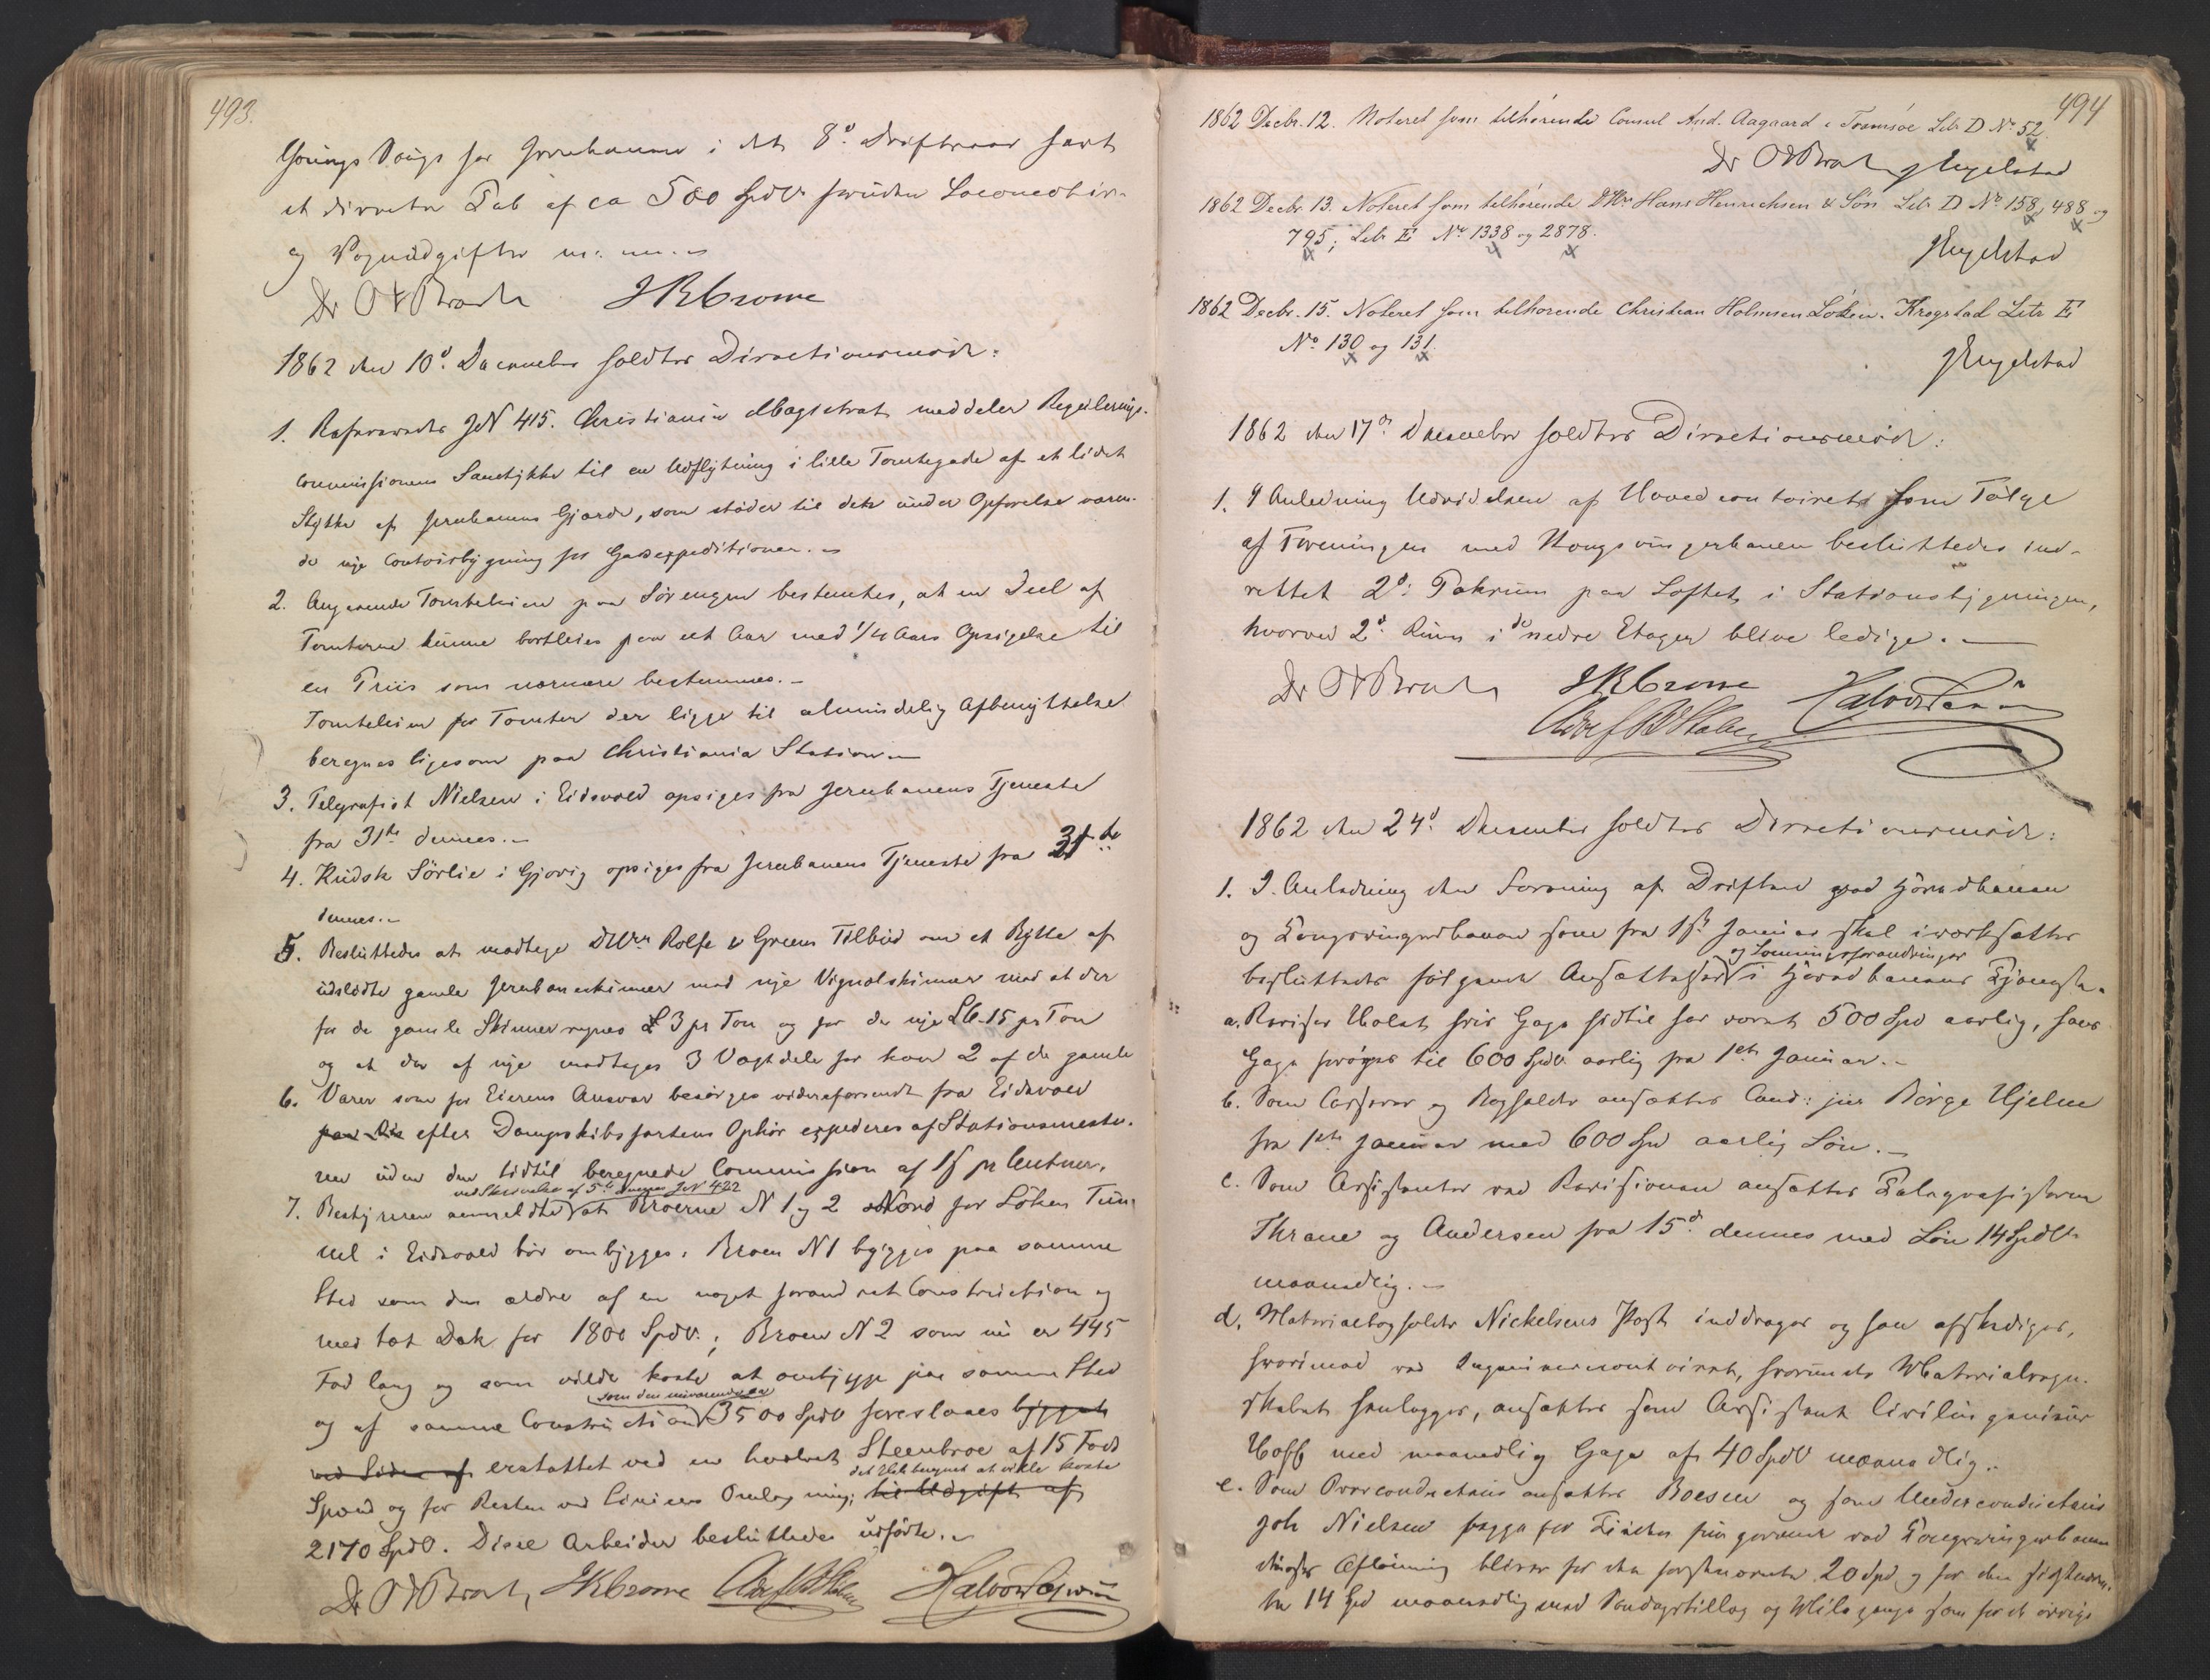 493.
Sørings Vougs for Jernbanen i det 8de Driftsaar havt
et directe Tab af ca 500 Spdlr foruden Locomotiv-
og Vognudgifter m. m.
Dr O J Broch JRCrowe
1862 den 10d December holdtes Directionsmøde:
1. Refereredes JN 415. Christiania Magistrat meddeler Regulerings-
commissionens Samtykke til en Udflytning i lille Tomtegade af et lidet
Stykke af Jernbanens Gjærde, som støder til det under Opførelse væren-
de nye Contoirbygning for Godsexpeditionen.
2. Angaaende Tomteleien paa Sørengen bestemtes, at en Deel af
Tomterne kunne bortleies paa eet Aar med 1/4 Aars Opsigelse til
en Priis som nærmere bestemmes.
Tomteleien for Tomter der ligge til almindelig Afbenyttelse
beregnes ligesom paa Christiania Station
3. Telegrafist Nielsen i Eidsvold opsiges fra Jernbanens Tjeneste
fra 31te dennes.
4. Kudsk Sörlie i Gjøvig opsiges fra Jernbanens Tjeneste fra 31te
dennes.
5. Besluttedes at modtage DHrr Rolfe & Greens Tilbud om et Bytte af
udslidte gamle Jernbaneskinner mod nye Vignolskinner mod at der
for de gamle Skinner regnes £ 3 pr Ton og for de nye £6-15 pr Ton
og at der af nye modtages 3 Vægtdele for hver 2 af de gamle
6. Varer som for Eierens Ansvar besørges videreforsendt fra Eidsvold
efter Dampskibsfartens Ophør expederes af Stationsmeste-
ren uden den tidtil beregnede Commission af 1ß pr Centner.
ved Skrivelse af 5te dennes JN 422
7. Bestyreren anmeldte at Broerne N 1 og 2 Nord for Löken Tun-
nel i Eidsvold bör ombygges. Broen N1 bygges paa samme
Sted som den ældre af en noget forandret Construction og
med tæt Dæk for 1800 Spdlr.; Broen N 2 som nu er 445
Fod lang og som vilde koste at ombygge paa samme Sted
som den nuværende
og af samme Construction 3500 Spdlr foreslaaes bygget
ved Siden af erstattet ved en hvælvet Steenbroe af 15 Fods
det Hele beregnet at ville koste
Spænd og for Resten ved Liniens Omlægning; til Udgift af
2170 Spdlr. Disse Arbeider besluttedes udførte.
Dr O J Broch, JRCrowe
494
1862 Decbr. 12. Noteret som tilhørende Consul And. Aagaard i Tromsöe Litr D No 52.
Dr O J Broch Engelstad
1862 Decbr 13. Noteret som tilhørende DHrr Hans Henrichsen & Sön Litr D No 158, 488 og
795; Litr E No 1338 og 2878.
Engelstad
1862 Decbr. 15. Noteret som tilhørende Christian Holmsen Löken i Krogstad Litr E
No 130 og 131.
Engelstad
1862 den 17de December holdtes Directionsmøde:
1. I Anledning Udvidelsen af Hovedcontoiret som Følge
af Foreningen med Kongsvingerbanen besluttedes ind-
rettet 2de Pakrum paa Loftet i Stationsbygningen,
hvorved 2de Rum i de nedre Etager blive ledige.
Dr O J Broch JRCrowe
1862 den 24d December holdtes Directionsmøde:
1. I Anledning den Forening af Driften paa Hovedbanen
og Kongsvingerbanen som fra 1ste Januar skal iværksættes
og Lønningsforandringer
besluttedes følgende Ansættelser i Hovedbanens Tjeneste.
a. Revisor Holst hvis Gage hidtil har været 500 Spd aarlig, faaer
Gage forøges til 600 Spdlr aarlig fra 1ste Januar.
b. Som Casserer og Bogholder ansættes Cand: jur Börge Hjelm
fra 1ste Januar med 600 Spd aarlig Løn.
c. Som Assistenter ved Revisionen ansættes Telegrafisterne
Thrane og Andersen fra 15d dennes med Løn 14 Spdlr
maanedlig.
d. Materialbogholder Nickelsens Post inddrages og han afskediges,
hvorimod ved Ingenieurcontoiret, hvorunder Materialregn-
skabet henlægges, ansættes som Assistent Civilingenieur
Hoff med maanedlig Gage af 40 Spdlr maanedlig.
e. Som Overconducteur ansættes Boesen og som Underconducteur
Joh Nielsen begge før Tiden fungerende ved Kongsvingerbanen
disses Aflønning bliver for den førstnævnte 20 Spd og for den sidstnævn-
te 14 Spd maanedlig med Søndagstillæg og Milepenge som for de øvrige